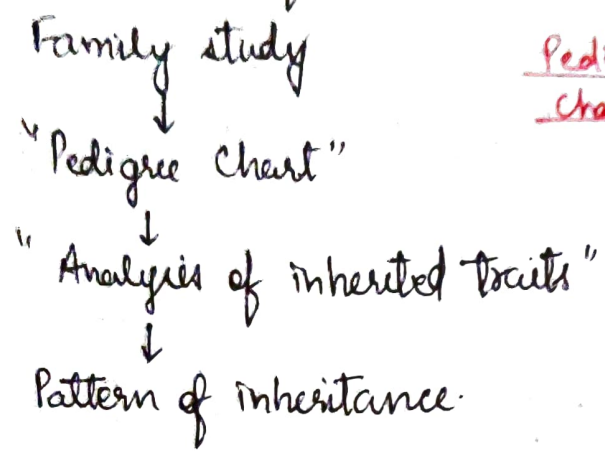 Family study
↓
"Pedigree Chart"
↓
"Analysis of inherited traits"
↓
Pattern of inheritance.